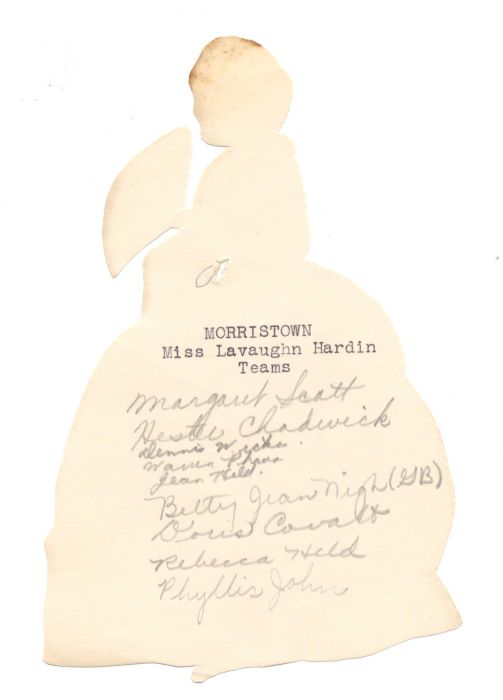 MORRISTOWN
Miss Lavaughn Hardin
Teams
Margaret Scott
Hester Chadwick
Dennis
Warren
Jean Held.
Betty Jean Nigh (GB)
Doris Covalt
Rebecca Held
Phyllis John